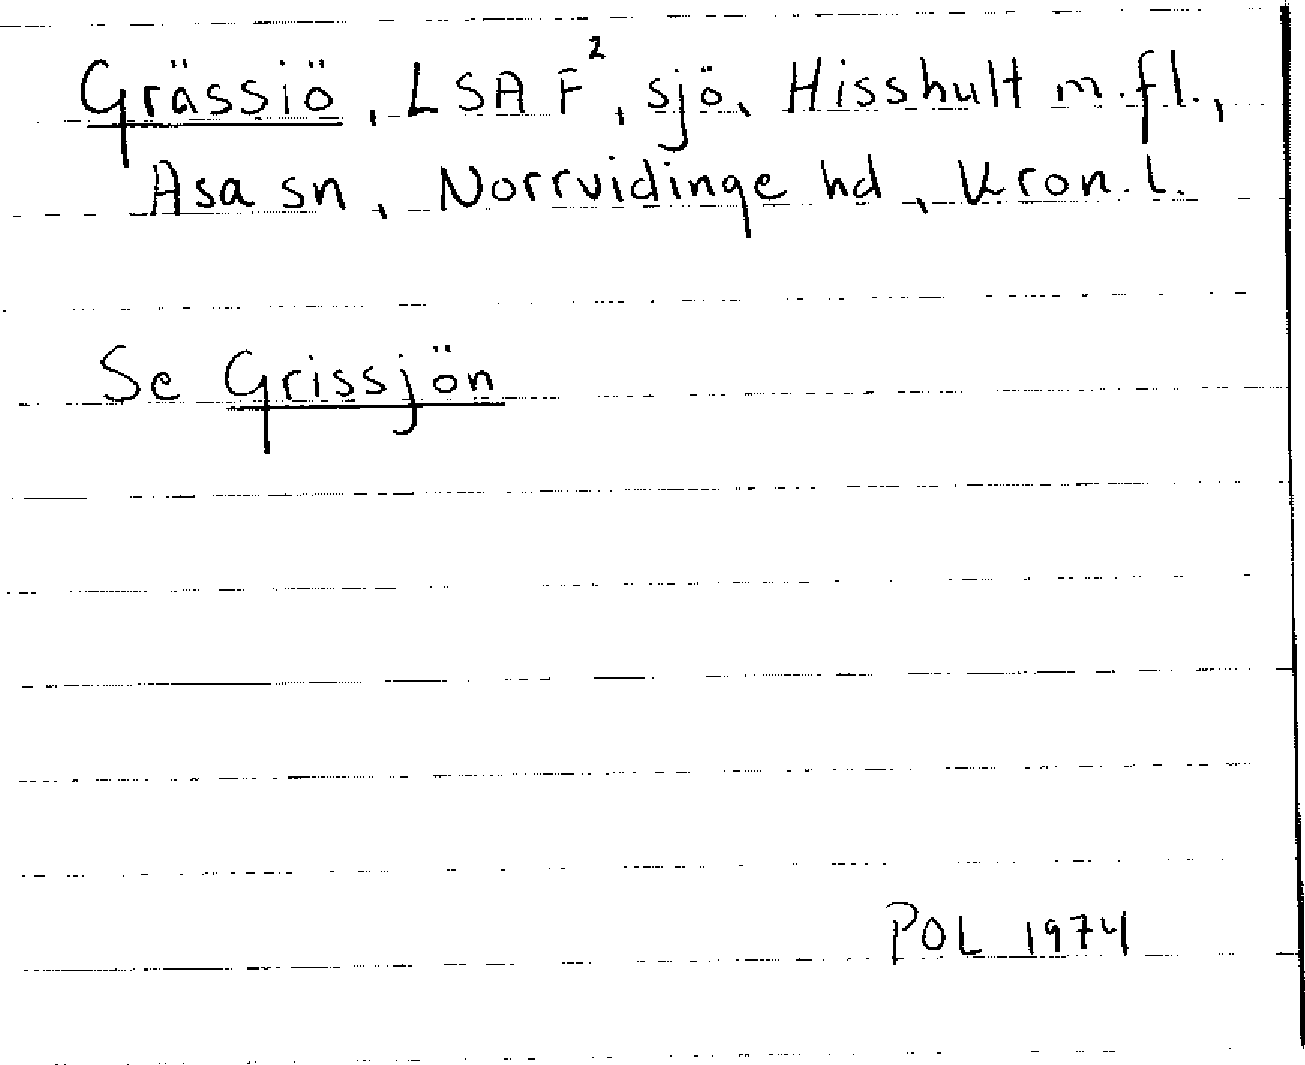 Grässiö, LSA F², sjö, Hisshult m.fl.,
Asa sn, Norrvidinge hd, Kron. l.
Se Grissjön
POL 1974